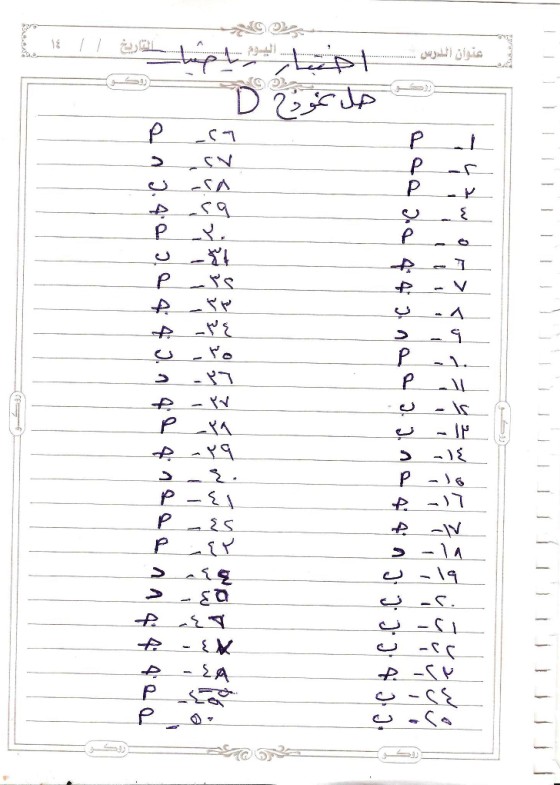 عنوان الدرس اليوم التاريخ / / ١٤
اختبار رياضيات
روكو روكو
حل نموذج D
١- أ
٢- أ
٣- أ
٤- ب
٥- أ
٦- ج
٧- ج
٨- ب
٩- د
١٠- أ
١١- أ
١٢- ب
١٣- ب
١٤- د
١٥- أ
١٦- ج
١٧- ج
١٨- د
١٩- ب
٢٠- ب
٢١- ب
٢٢- ب
٢٣- ج
٢٤- ب
٢٥- ب
٢٦- أ
٢٧- د
٢٨- ب
٢٩- ج
٣٠- أ
٣١- ب
٣٢- أ
٣٣- ج
٣٤- ج
٣٥- ب
٣٦- د
٣٧- ج
٣٨- أ
٣٩- ج
٤٠- د
٤١- أ
٤٢- أ
٤٣- أ
٤٤- د
٤٥- د
٤٦- ج
٤٧- ج
٤٨- ج
٤٩- أ
٥٠- أ
روكو
روكو
روكو روكو